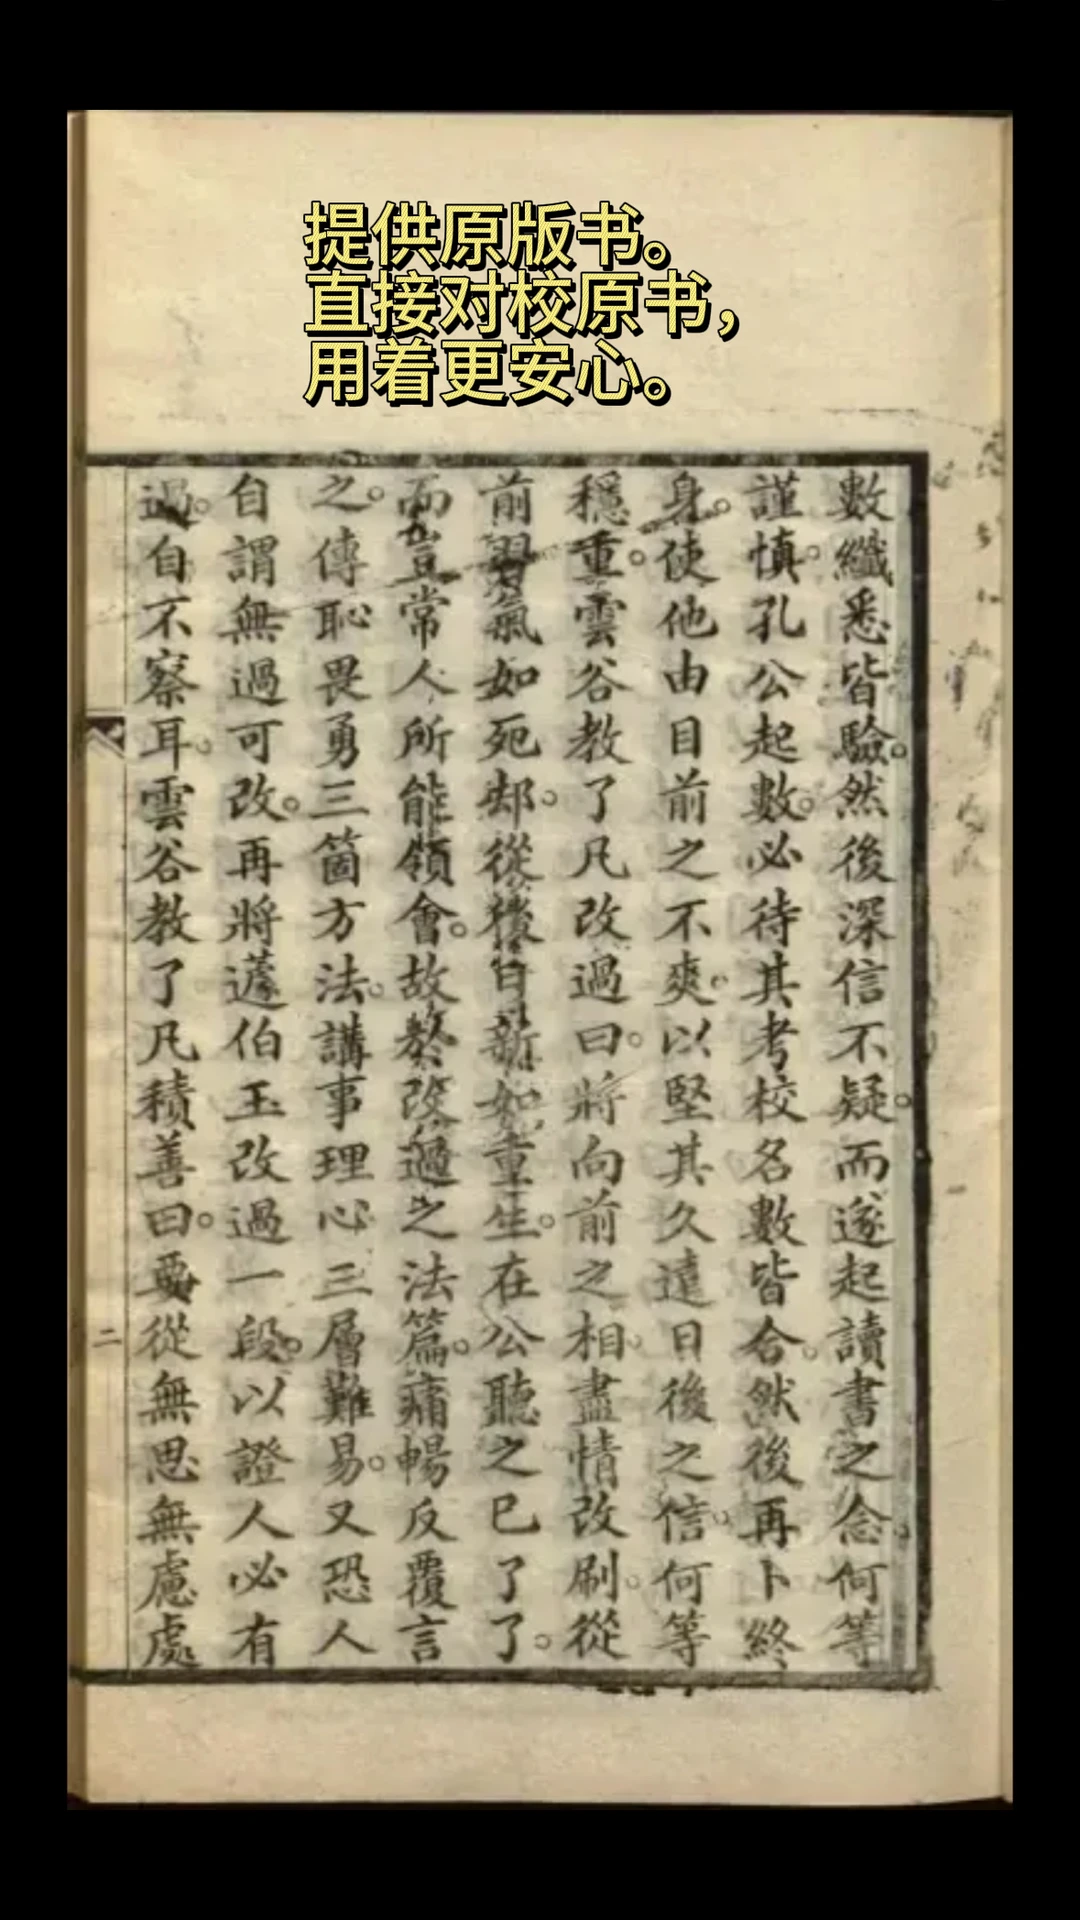 提供原版书。
直接对校原书，
用着更安心。
數纖悉皆驗。然後深信不疑。而遂起讀書之念。何等
謹慎。孔公起數。必待其考校名數皆合。然後再卜終
身。使他由目前之不爽。以堅其久遠日後之信。何等
穩重。雲谷教了凡改過曰。將向前之相。盡情改刷。從
前習氣如死却。從後日新如重生。在公聽之已了了。
而豈常人所能領會。故發改過之法篇。痛暢反覆言
之。傳恥畏勇三箇方法。講事理心三層難易。又恐人
自謂無過可改。再將蘧伯玉改過一段。以證人必有
過。自不察耳。雲谷教了凡積善曰。要從無思無慮處
二